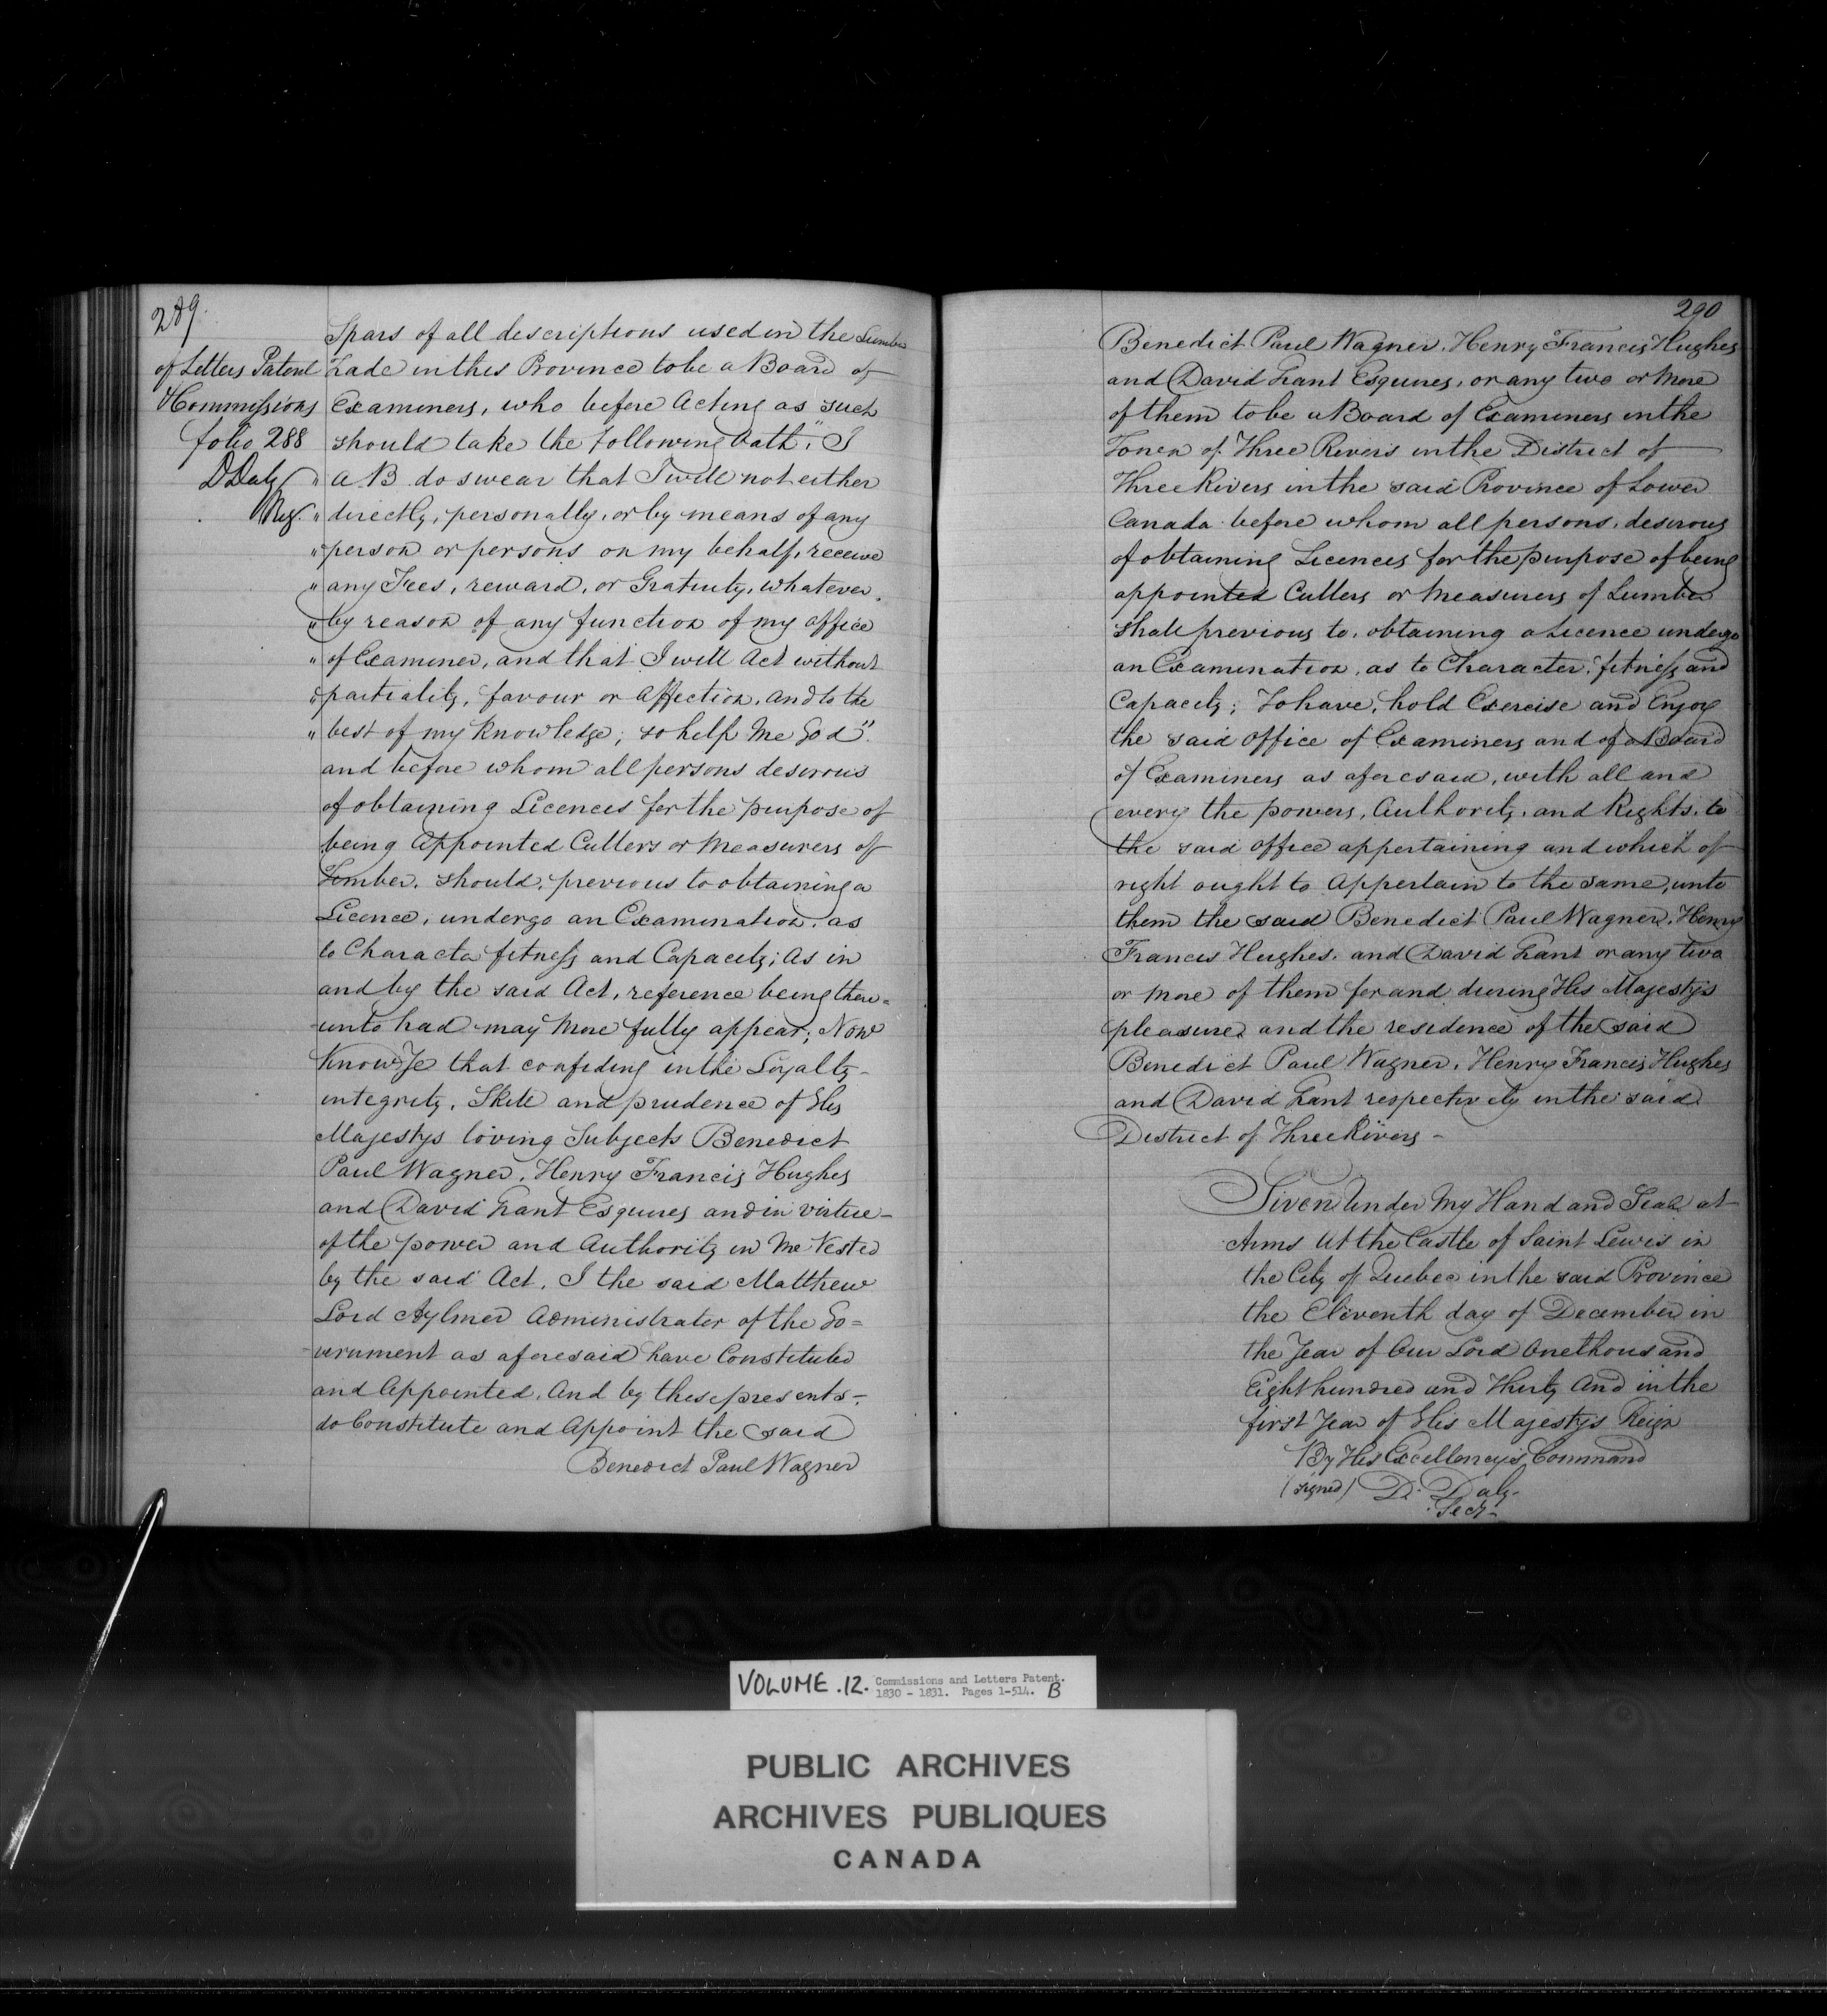 289.
of Letters Patent
& Commissions
folio 288
D Daly
Reg.
Spars of all descriptions used in the Lumber
Trade in this Province to be a Board of
Examiners, who before Acting as such
should take the following Oath, "I
" A B do swear that I will not either
" directly, personally, or by means of any
" person or persons on my behalf, receive
" any Fees, reward, or Gratuity, whatever,
" by reason of any function of my office
" of Examiner, and that I will Act without
" partiality, favour or Affection, and to the
" best of my Knowledge; so help Me God".
and before whom all persons desirous
of obtaining Licences for the purpose of
being Appointed Cullers or Measurers of
Timber, should, previous to obtaining a
Licence, undergo an Examination, as
to Character fitness and Capacity; As in
and by the said Act, reference being there=
unto had may More fully appear; Now
Know Ye that confiding in the Loyalty-
integrity, Skill and prudence of His
Majestys loving Subjects Benedict
Paul Wagner, Henry Francis Hughes
and David Grant Esquires and in virtue-
of the power and Authority in Me Vested
by the said Act, I the said Matthew
Lord Aylmer Administrator of the Go=
vernment as aforesaid have Constituted
and Appointed, And by these presents-
do Constitute and Appoint the said
Benedict Paul Wagner
290
Benedict Paul Wagner, Henry Francis Hughes
and David Grant Esquires, or any two or More
of them to be a Board of Examiners in the
Town of Three Rivers in the District of
Three Rivers in the said Province of Lower
Canada before whom all persons, desirous
of obtaining Licences for the purpose of being
appointed Cullers or Measurers of Lumber
shall previous to, obtaining a Licence undergo
an Examination, as to Character, fitness and
Capacity; To have, hold Exercise and Enjoy
the said office of Examiners and of a Board
of Examiners as aforesaid, with all and
every the powers, Authority, and Rights, to
the said office appertaining and which of
right ought to Appertain to the same, unto
them the said Benedict Paul Wagner, Henry
Francis Hughes, and David Grant or any two
or More of them for and during His Majesty's
pleasure and the residence of the said
Benedict Paul Wagner, Henry Francis Hughes
and David Grant respectively in the said
District of Three Rivers -
Given Under My Hand and Seal at
Arms At the Castle of Saint Lewis in
the City of Quebec in the said Province
the Eleventh day of December in
the Year of Our Lord One thousand
Eight hundred and thirty And in the
first Year of His Majesty's Reign
By His Excellency's Command
(signed) D. Daly-
Secy-
VOLUME .12. Commissions and Letters Patent.
1830 - 1831. Pages 1-514. B
PUBLIC ARCHIVES
ARCHIVES PUBLIQUES
CANADA